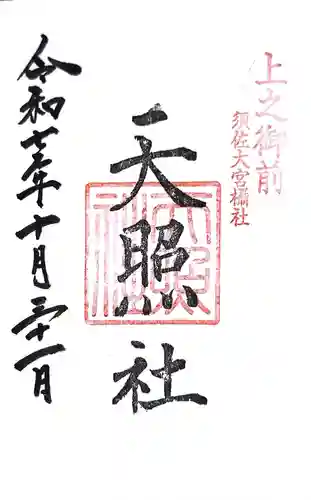 上之御前
須佐大宮攝社
天照社
令和七年十月二十一日